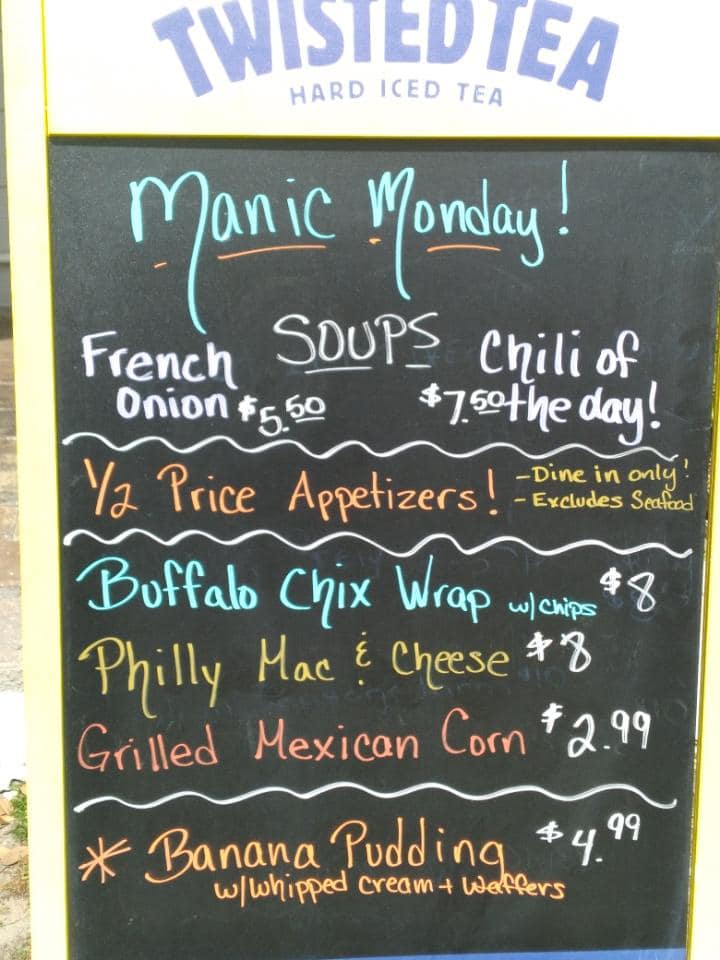 TWISTED TEA
HARD ICED TEA
Manic Monday!
SOUPS
French
Onion $5.50
Chili of
$7.50 the day!
1/2 Price Appetizers!
- Dine in only!
- Excludes Seafood
Buffalo Chix Wrap w/chips $8
Philly Mac & Cheese $8
Grilled Mexican Corn $2.99
* Banana Pudding $4.99
w/whipped cream + Waffers